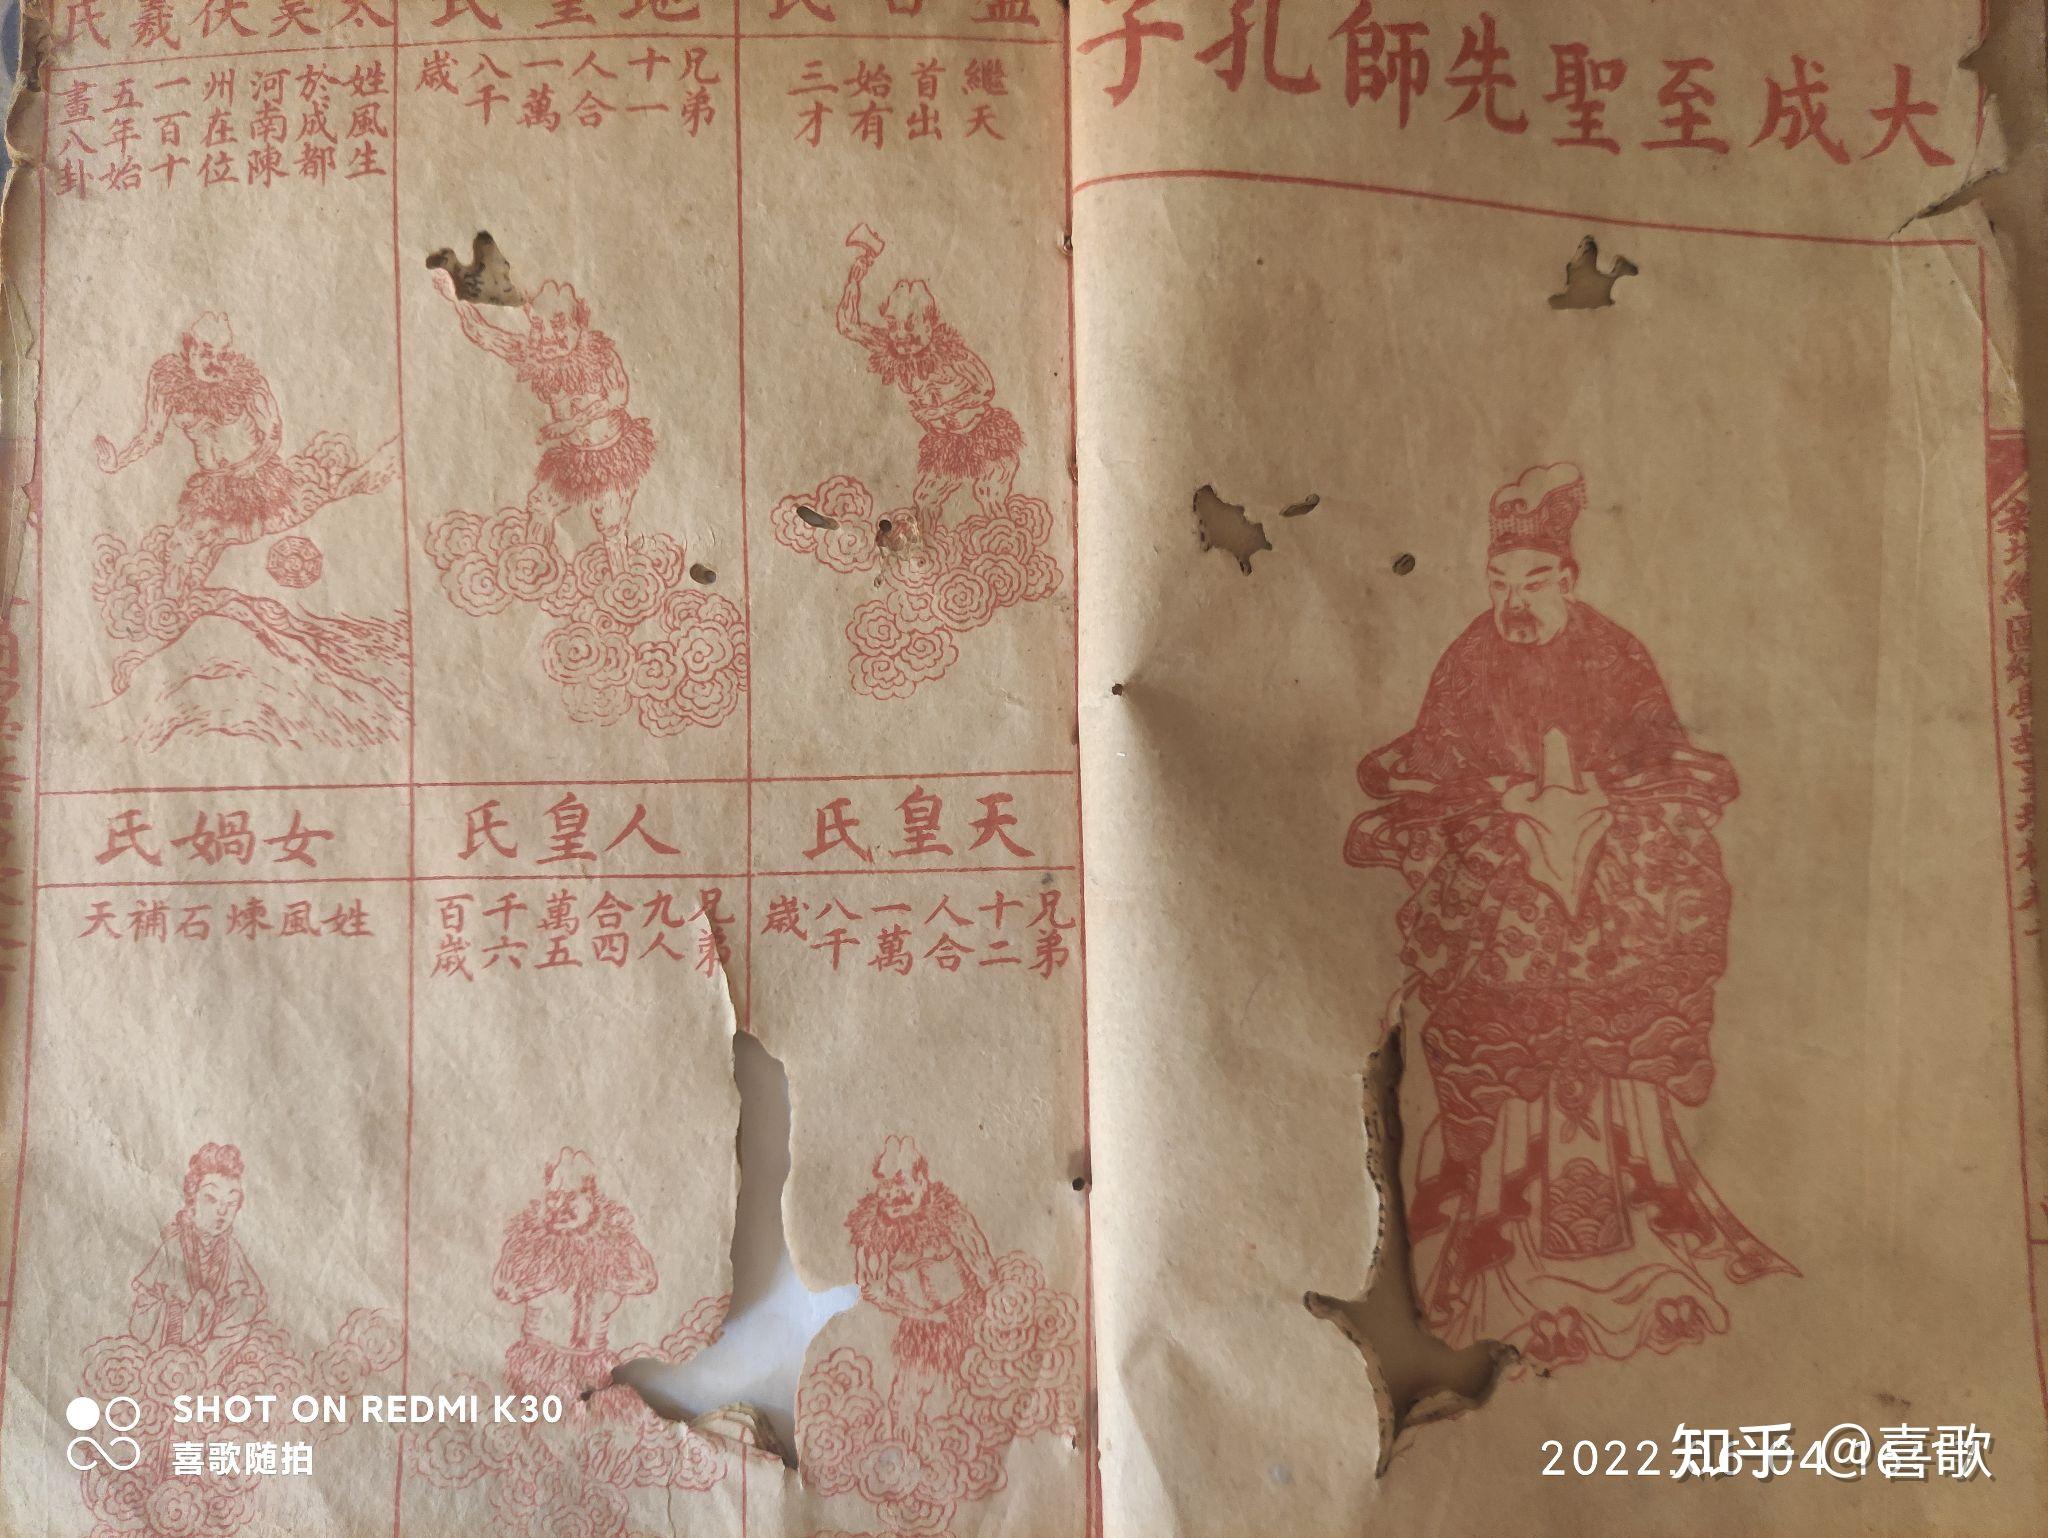 大成至聖先師孔子
盤古氏
繼天
首出
始有
三才
地皇氏
兄弟
十一
人合
一萬
八千
歲
太昊伏羲氏
姓風生
於成都
河南陳
州在位
一百十
五年始
畫八卦
天皇氏
兄弟
十二
人合
一萬
八千
歲
人皇氏
兄弟
九人
合四
萬五
千六
百歲
女媧氏
姓風煉石補天
SHOT ON REDMI K30
喜歌随拍
知乎 @喜歌